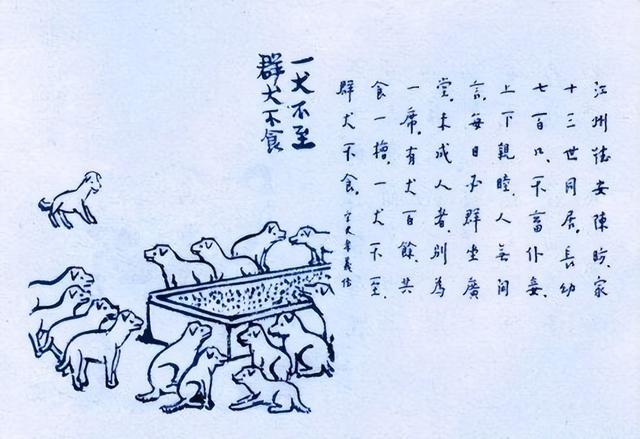 一犬不至
群犬不食
江州德安陳昉，家
十三世同居。長幼
七百口，不畜仆妾。
上下親睦，人無间
言。每日必群坐廣
堂，未成人者，別為
一席。有犬百餘，共
食一槽，一犬不至，
群犬不食。宋史孝義傳